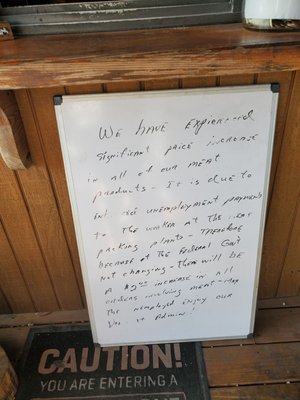 WE HAVE Experienced
significant price increase
in all of our meat
products - It is due to
unemployment payments
to the worker at the meat
packing plants - Therefore
because of the Federal Govt
Not changing - there will be
A $2.00 increase in all
orders involving meat - May
the unemployed ENJOY OUR
CAUTION!
YOU ARE ENTERING A